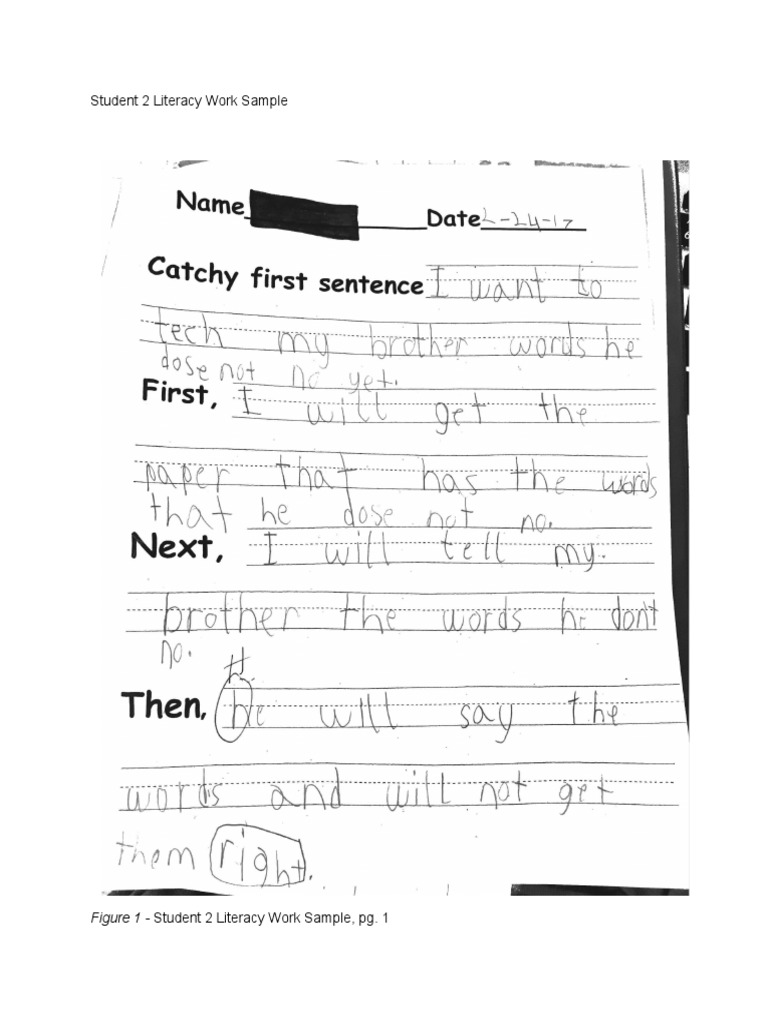 Student 2 Literacy Work Sample
Name Date 2-24-17
Catchy first sentence I want to
tech my brother words he
dose not no yet.
First, I will get the
paper that has the words
that he dose not no.
Next, I will tell my
brother the words he don't
no.
Then, he will say the
words and will not get
them right.
Figure 1 - Student 2 Literacy Work Sample, pg. 1